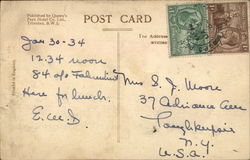 Published by Queen's
Park Hotel Co. Ltd.,
Trinidad, B.W.I.
POST CARD
For Address
Jan 30-34
12.34 noon
84 o/s Falmouth
Here for lunch.
E.W.D.
Mrs S. J. Moore
37 Adriance Ave
Poughkeepsie
N.Y.
U.S.A